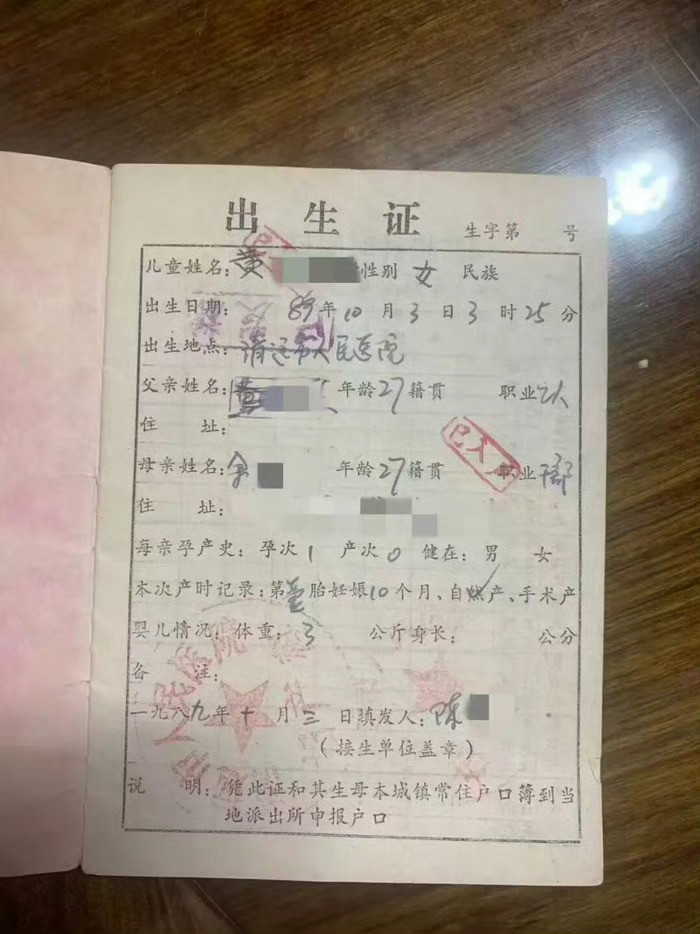 出生证 生字第 号
儿童姓名：黄 性别 女 民族
出生日期： 89年10月3日3时25分
出生地点：清远市人民医院
父亲姓名： 年龄27籍贯 职业工人
住 址：
母亲姓名：余 年龄27籍贯 职业干部
住 址：
母亲孕产史：孕次1 产次0 健在：男 女
本次产时记录：第壹胎妊娠10个月、自然产、手术产
婴儿情况：体重：3 公斤身长： 公分
备 注：
一九八九年十月三日填发人：陈
（接生单位盖章）
说 明：凭此证和其生母本城镇常住户口簿到当
地派出所申报户口
已入
已入